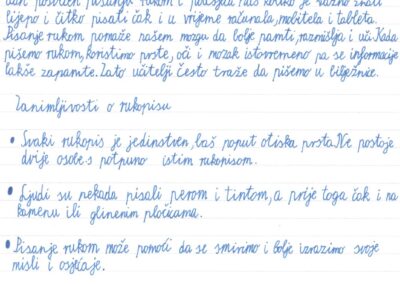 dan posvećen pisanju rukom i podsjeća nas koliko je važno znati
lijepo i čitko pisati čak i u vrijeme računala, mobitela i tableta.
Pisanje rukom pomaže našem mozgu da bolje pamti, razmišlja i uči. Kada
pišemo rukom, koristimo prste, oči i mozak istovremeno pa se informacije
lakše zapamte. Zato učitelji često traže da pišemo u bilježnice.
Zanimljivosti o rukopisu
• Svaki rukopis je jedinstven, baš poput otiska prsta. Ne postoje
dvije osobe s potpuno istim rukopisom.
• Ljudi su nekada pisali perom i tintom, a prije toga čak i na
kamenu ili glinenim pločicama.
• Pisanje rukom može pomoći da se smirimo i bolje izrazimo svoje
misli i osjećaje.